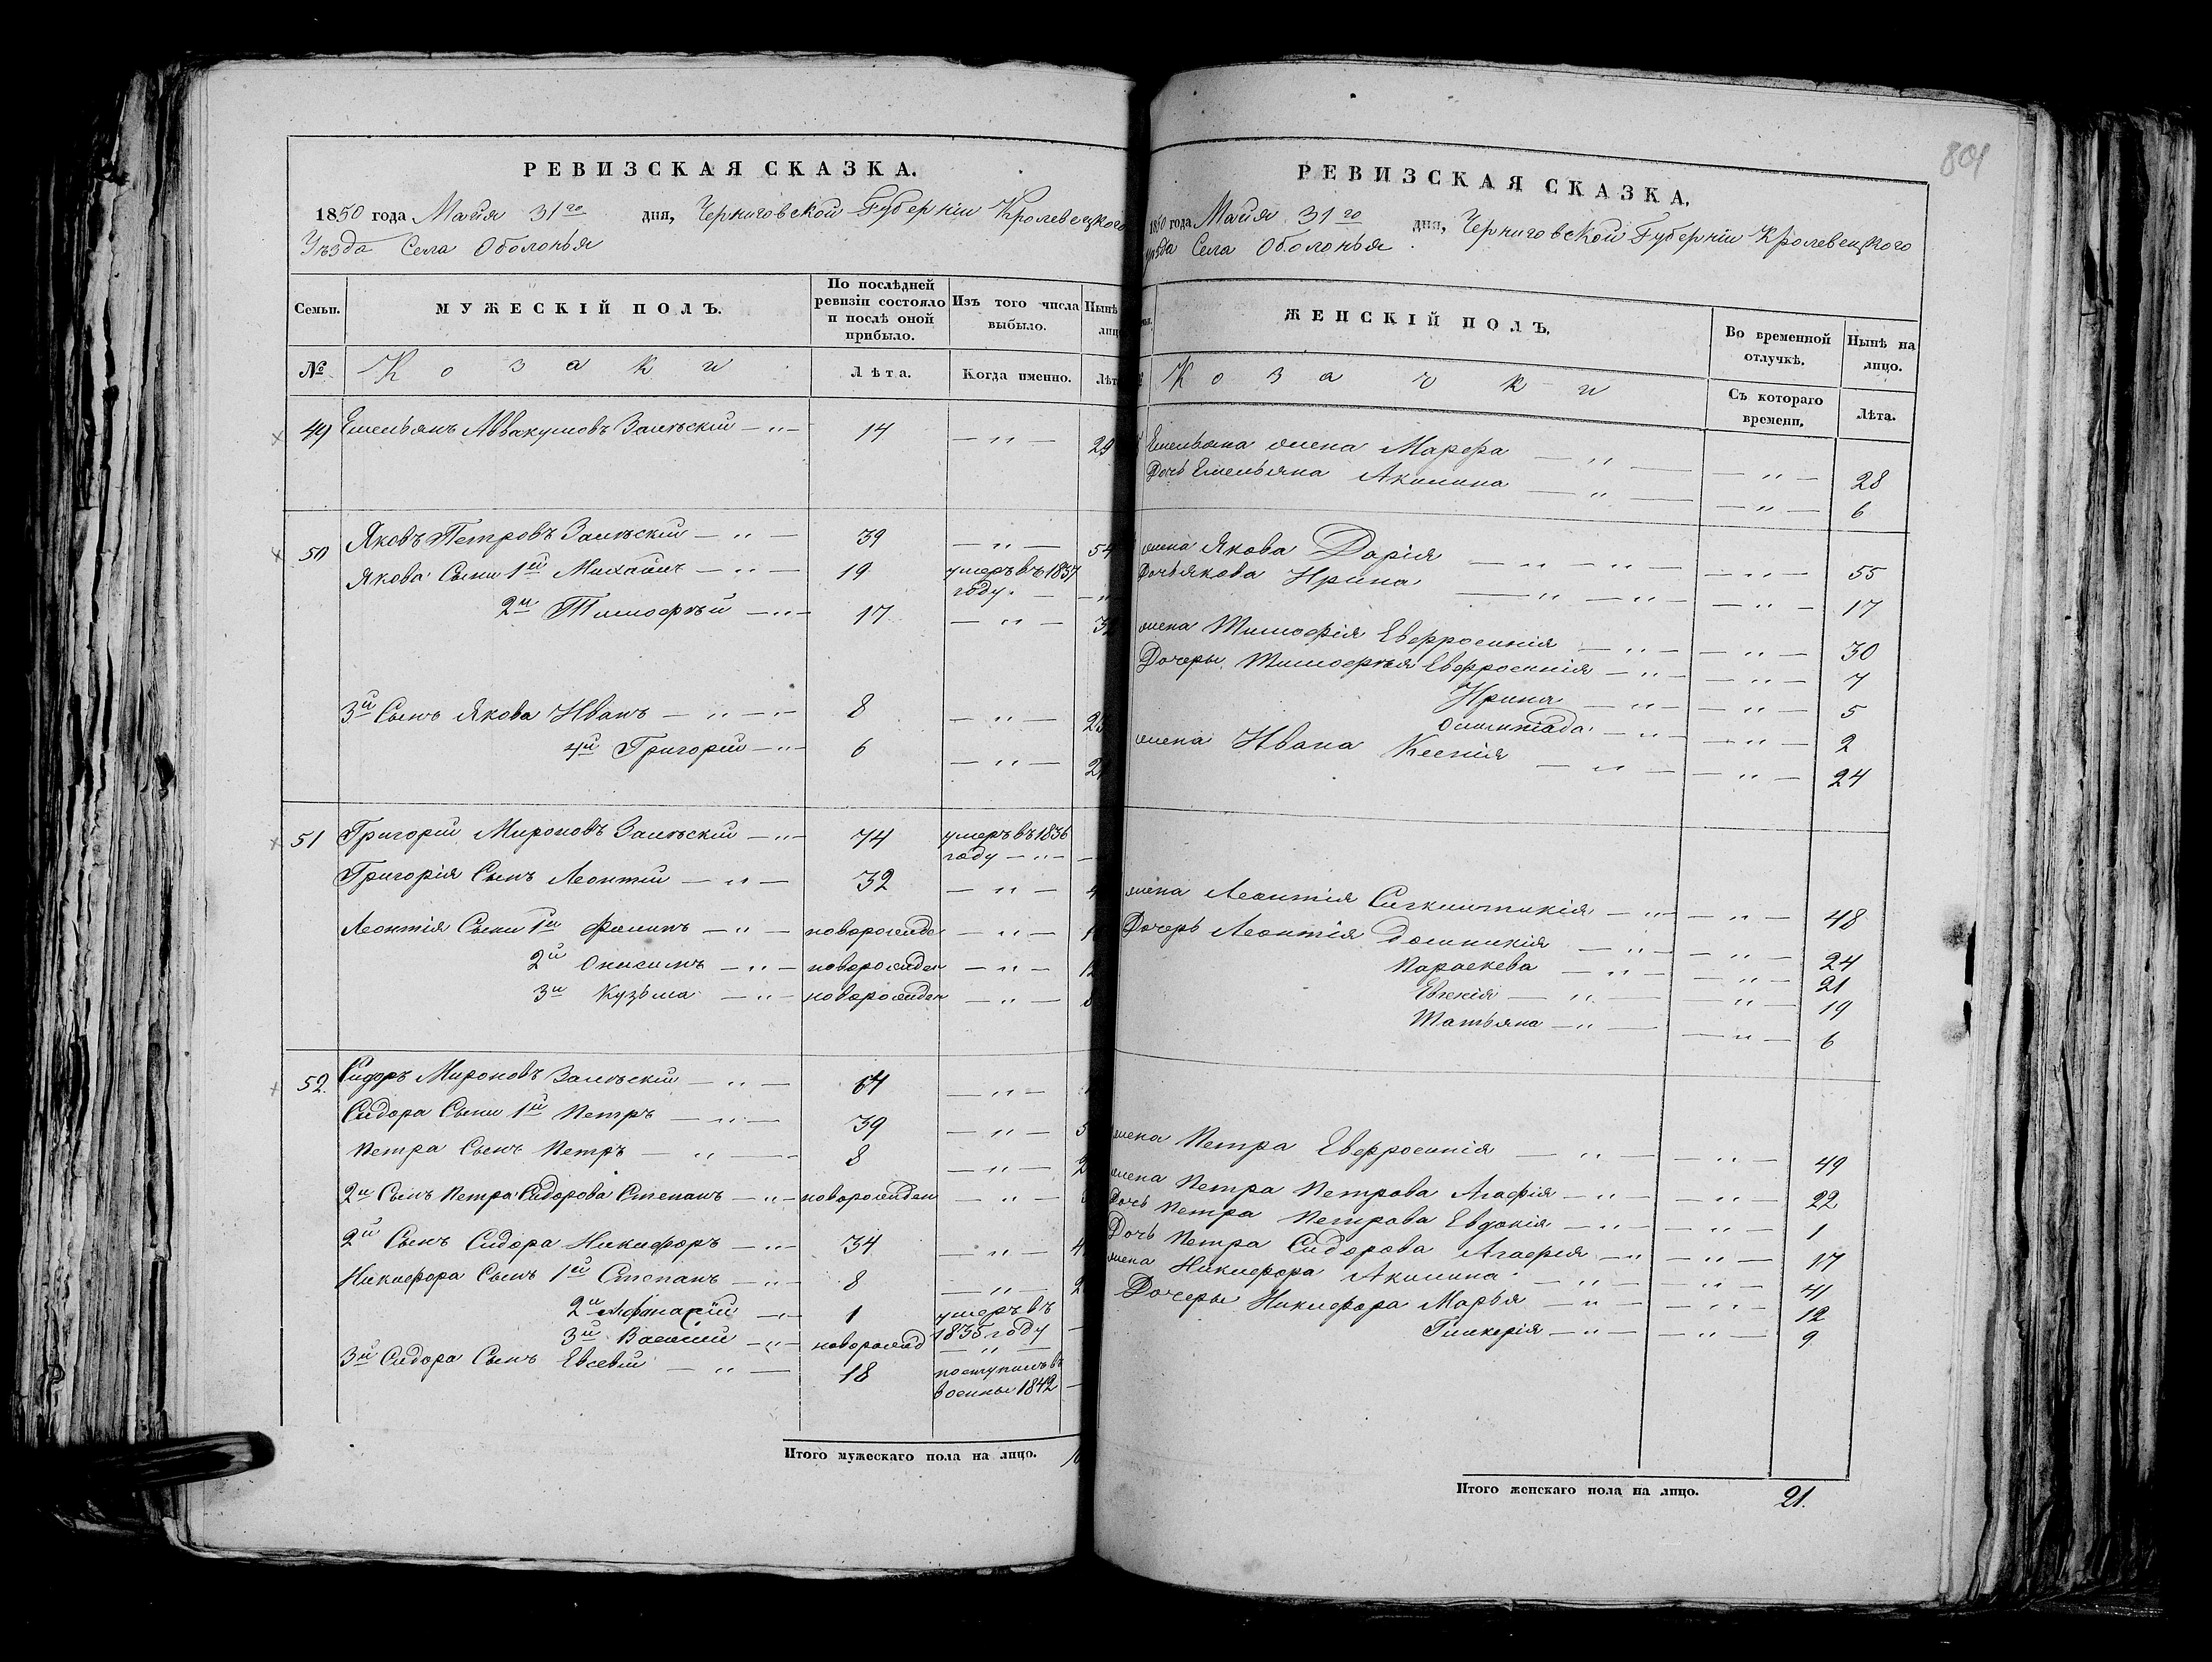 РЕВИЗСКАЯ СКАЗКА.
1850 года Майя 31го дня, Черниговской Губерніи Кролевецкого
Уѣзда Села Оболонья
Семьи.
МУЖЕСКІЙ ПОЛЪ.
По послѣдней ревизіи состояло и послѣ оной прибыло.
Изъ того числа выбыло.
Нынѣ
№
Козаки
Лѣта.
Когда именно.
49 Емельянъ Аввакумовъ 14 — " — 29
50 Яковъ Петровъ 39 — " — 54
Якова Сыны 1й Михаилъ — " — 19 умеръ въ 1837
году.
2й Тимофѣй — " — 17 — " — 32
3й Сынъ Якова Иванъ — " — 8 — " —
4й Григорій — " — 6 — " —
51 Григорій Мироновъ 74 умеръ въ 1836
году — " —
Григорія Сынъ Леонтій — " — 32 — " —
Леонтія Сыны 1й Филипъ — " — новорожден — " —
2й Онисимъ — " — новорожден — " —
3й Кузьма — " — новорожден — " —
52 Сидоръ Мироновъ 64 — " —
Сидора Сыны 1й Петръ — " — 39 — " —
Петра Сынъ Петръ — " — 8 — " —
2й Сынъ Петра Сидорова Степанъ — " — новорожден — " —
2й Сынъ Сидора Никифоръ — " — 34 — " —
Никифора Сынъ 1й Степанъ — " — 8 — " —
2й Афанасій — " — 1 умеръ въ
1835 году
3й Василій — " — новорожд — " —
3й Сидора Сынъ Евсевій — " — 18 поступилъ въ
военные 1842
Итого мужескаго пола на лицо.
801
РЕВИЗСКАЯ СКАЗКА.
1850 года Майя 31го дня, Черниговской Губерніи Кролевецкого
Уѣзда Села Оболонья
ЖЕНСКІЙ ПОЛЪ.
Во временной отлучкѣ.
Нынѣ на лицо.
Козачки
Съ котораго времени.
Лѣта.
Емельяна жена Марфа — " — — " — 28
Дочь Емельяна Акилина — " — — " — 6
жена Якова Дарія — " — " — — " — 55
Дочь Якова Ирина — " — " — — " — 17
жена Тимофія Евфросинія — " — — " — 30
Дочеры Тимофѣя Евфросинія — " — — " — 7
Ирина — " — — " — 5
Олимпіада — " — — " — 2
жена Ивана Ксенія — " — — " — 24
жена Леонтія — " — — " — 48
Дочерь Леонтія Домникія — " — — " — 24
Параскева — " — — " — 21
Евгенія — " — — " — 19
Татьяна — " — — " — 6
жена Петра Евфросинія — " — — " — 49
жена Петра Петрова Агафія — " — — " — 22
Дочь Петра Петрова Евдокія — " — — " — 1
Дочь Петра Сидорова Агафія — " — — " — 17
жена Никифора Акилина — " — — " — 41
Дочеры Никифора Марья — " — — " — 12
Гликерія — " — — " — 9
Итого женскаго пола на лицо. 21.